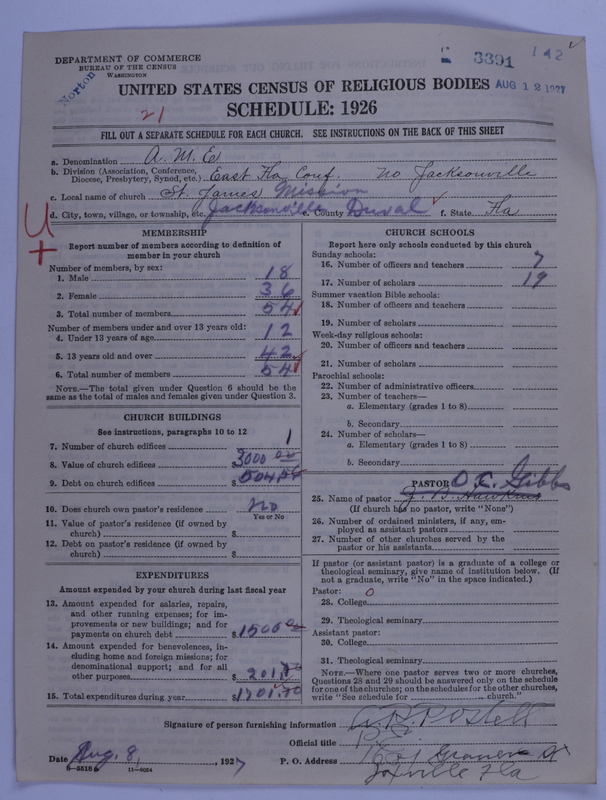 DEPARTMENT OF COMMERCE
BUREAU OF THE CENSUS
WASHINGTON
Norton
3391
142
AUG 12 1927
UNITED STATES CENSUS OF RELIGIOUS BODIES
SCHEDULE: 1926
21
FILL OUT A SEPARATE SCHEDULE FOR EACH CHURCH. SEE INSTRUCTIONS ON THE BACK OF THIS SHEET
a. Denomination A. M. E
b. Division (Association, Conference, Diocese, Presbytery, Synod, etc.) East Fla Conf. No Jacksonville
c. Local name of church St. James Mission
d. City, town, village, or township, etc. Jacksonville e. County Duval f. State Fla
U
+
MEMBERSHIP
Report number of members according to definition of
member in your church
Number of members, by sex:
1. Male 18
2. Female 36
3. Total number of members 54
Number of members under and over 13 years old:
4. Under 13 years of age 12
5. 13 years old and over 42
6. Total number of members 54
NOTE.—The total given under Question 6 should be
same as the total of males and females given under Question 3.
CHURCH BUILDINGS
See instructions, paragraphs 10 to 12
7. Number of church edifices 1
8. Value of church edifices $3000 00
9. Debt on church edifices $504
10. Does church own pastor's residence No
Yes or No
11. Value of pastor's residence (if owned by
church) $
12. Debt on pastor's residence (if owned by
church) $
EXPENDITURES
Amount expended by your church during last fiscal year
13. Amount expended for salaries, repairs,
and other running expenses; for im-
provements or new buildings; and for
payments on church debt $1500 00
14. Amount expended for benevolences, in-
cluding home and foreign missions; for
denominational support; and for all
other purposes $201
15. Total expenditures during year $1701
CHURCH SCHOOLS
Report here only schools conducted by this church
Sunday schools:
16. Number of officers and teachers 7
17. Number of scholars 19
Summer vacation Bible schools:
18. Number of officers and teachers
19. Number of scholars
Week-day religious schools:
20. Number of officers and teachers
21. Number of scholars
Parochial schools:
22. Number of administrative officers
23. Number of teachers—
a. Elementary (grades 1 to 8)
b. Secondary
24. Number of scholars—
a. Elementary (grades 1 to 8)
b. Secondary
PASTOR O. C. Gibbs
25. Name of pastor J. B. Hawkins
(If church has no pastor, write "None")
26. Number of ordained ministers, if any, em-
ployed as assistant pastors
27. Number of other churches served by the
pastor or his assistants
If pastor (or assistant pastor) is a graduate of a college or
theological seminary, give name of institution below. (If
not a graduate, write "No" in the space indicated.)
Pastor: 0
28. College
29. Theological seminary
Assistant pastor:
30. College
31. Theological seminary
NOTE.—Where one pastor serves two or more churches,
Questions 28 and 29 should be answered only on the schedule
for one of the churches; on the schedules for the other churches,
write "See schedule for church."
Signature of person furnishing information Postell
Official title P. E.
Date Aug. 8, 1927 P. O. Address
Jaxville Fla
8—5518 11—9054